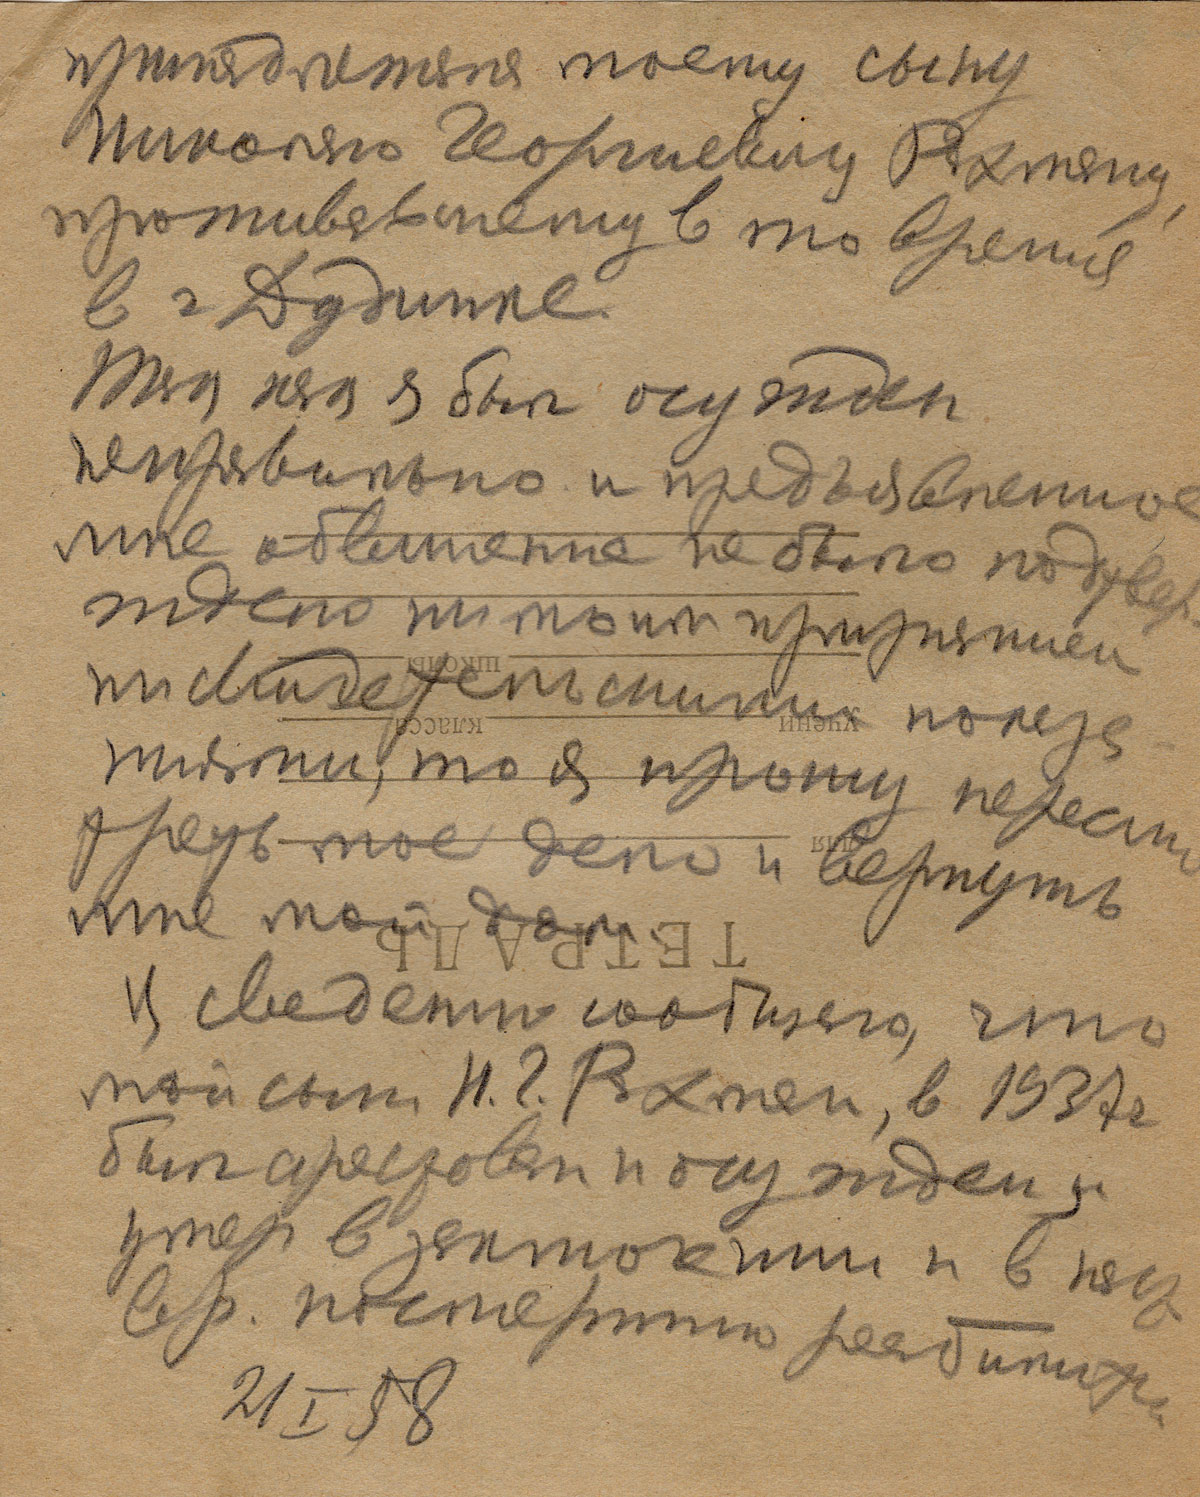 принадлежаня моему сыну
Николаю Георгиевичу Рахману,
проживавшему в то время
в г Дудинке.
Так как я был осужден
неправильно и предъявленное
мне обвинение не было подтвер
ждено ни моим признанием
ни свидетельскими показа
ниями, то я прошу пересмо
треть мое дело и вернуть
мне мой дом.
К сведению сообщаю, что
мой сын Н. Г. Рахман, в 1937 г
был арестован и осужден и
умер в заключении и в наст
вр. посмертно реабилитир.
21 I 58
школы
класса
учени
для
ТЕТРАДЬ